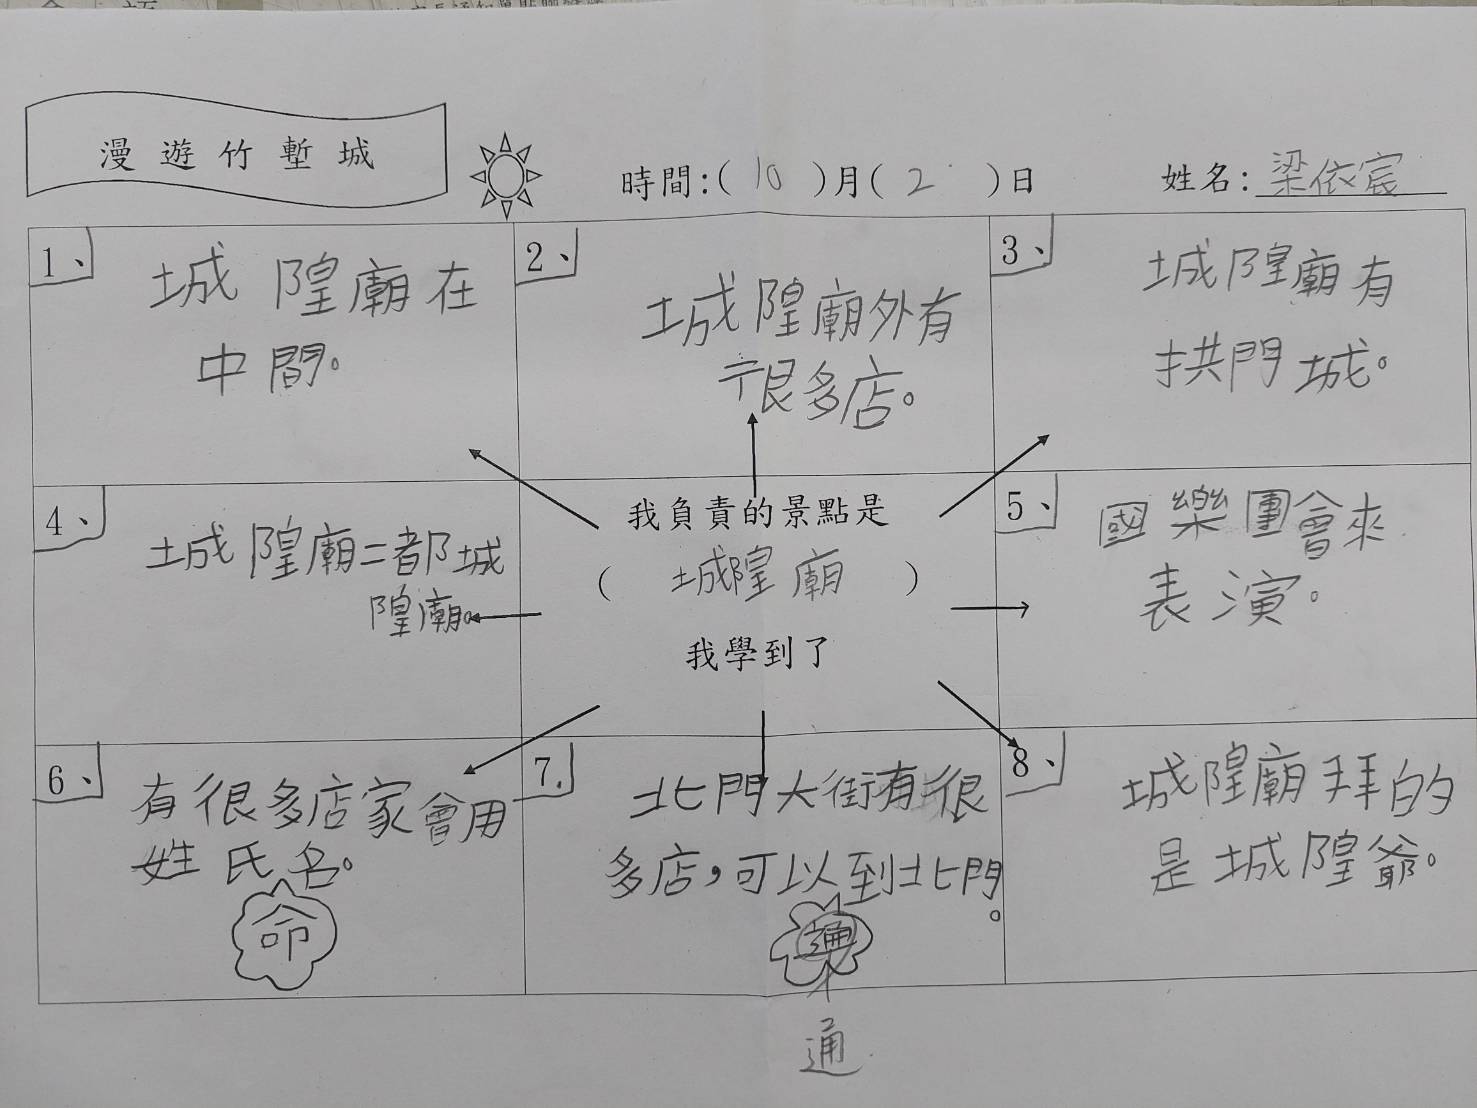 漫遊竹塹城
時間:( 10 )月( 2 )日
姓名:梁依宸
1、
城隍廟在
中間。
2、
城隍廟外有
很多店。
3、
城隍廟有
拱門城。
4、
城隍廟=都城
隍廟。
我負責的景點是
( 城隍廟 )
我學到了
5、
國樂團會來
表演。
6、
有很多店家會用
姓氏名。
命
7、
北門大街有很
多店,可以到北門
。
通
通
8、
城隍廟拜的
是城隍爺。